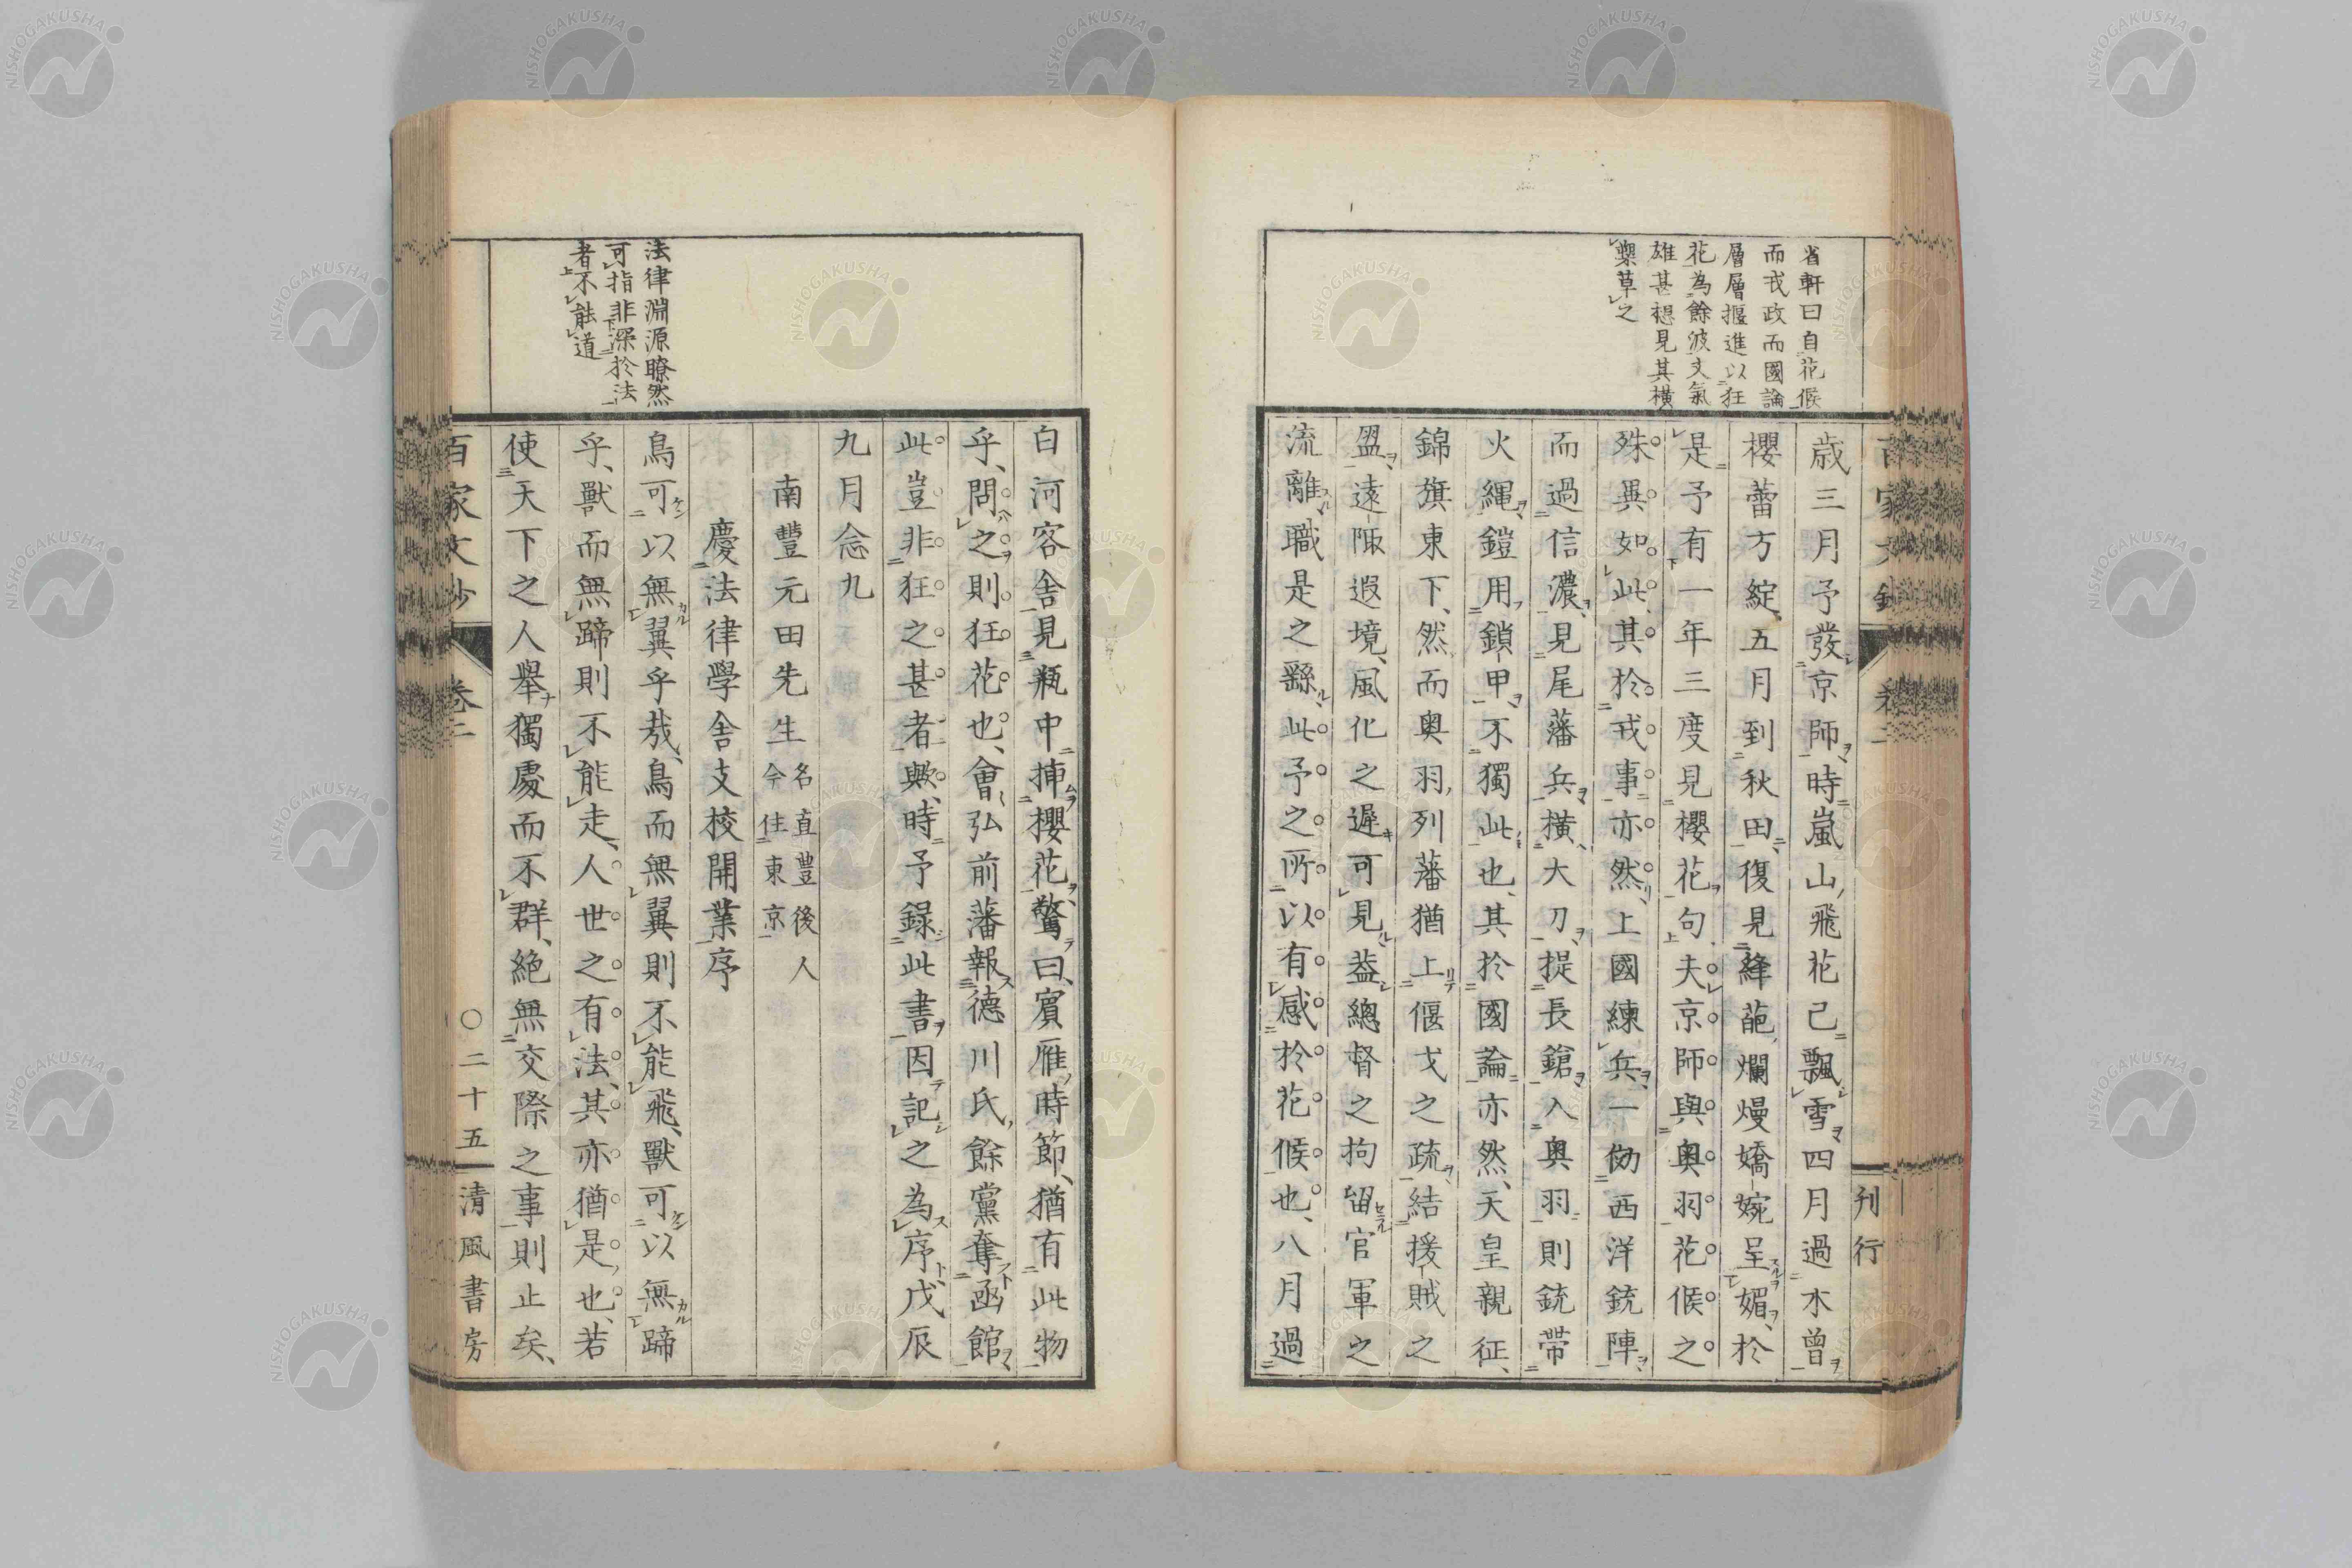 省軒曰自花候
而戎政而國論
層層擢進以狂
花為餘波文氣
雄甚想見其橫
槊草之
歳三月予發京師時嵐山飛花已飄雪四月過木曾
櫻蕾方綻五月到秋田復見絳葩爛熳嬌婉呈媚於
是予有一年三度見櫻花句夫京師與奥羽花候之
殊異如此其於戎事亦然上國練兵一倣西洋銃陣
而過信濃見尾藩兵橫大刀提長鎗入奥羽則銃帶
火繩鎧用鎖甲不獨此也其於國論亦然天皇親征
錦旗東下然而奥羽列藩猶上偃戈之疏結援賊之
盟遠陬遐境風化之遲可見益總督之拘留官軍之
流離職是之繇此予之所以有感於花候也八月過
刊行
白河客舎見瓶中揷櫻花驚曰賓雁時節猶有此物
乎問之則狂花也會弘前藩報德川氏餘黨奪函館
此豈非狂之甚者歟時予錄此書因記之為序戊辰
九月念九
南豐元田先生 名直豐後人 今住東京
慶法律學舍支校開業序
法律淵源瞭然
可指非深於法
者不能道
鳥可以無翼乎哉鳥而無翼則不能飛獸可以無蹄
乎獸而無蹄則不能走人世之有法其亦猶是也若
使天下之人舉獨處而不群絶無交際之事則止矣
百家文鈔 卷二 ○二十五 清風書房
NISHOGAKUSHA